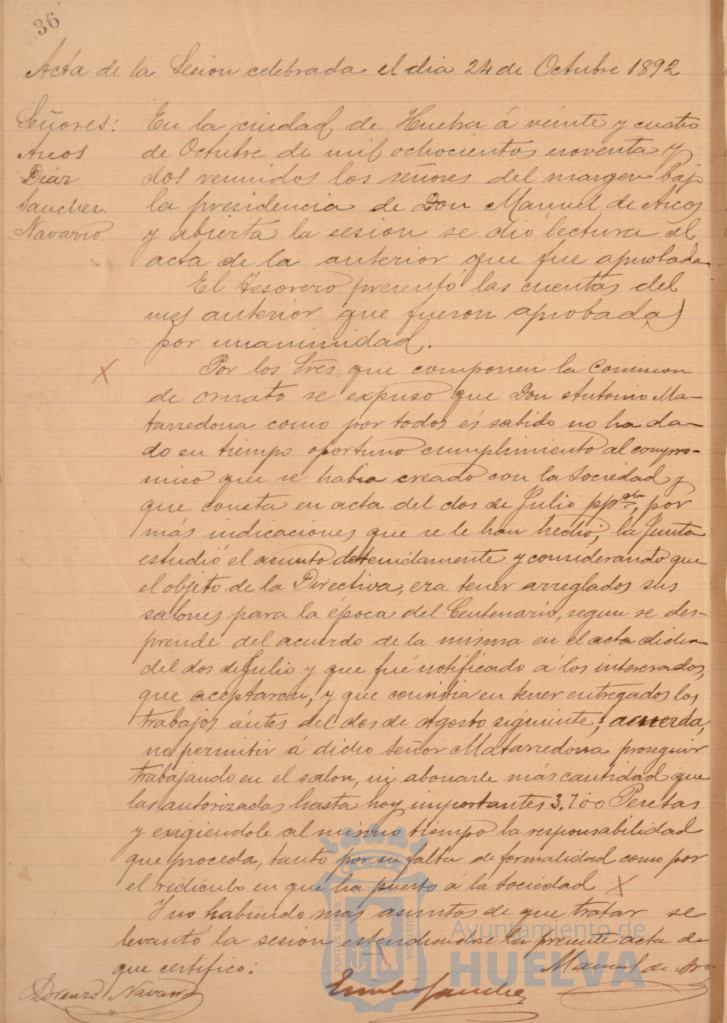 36
Acta de la Sesion celebrada el dia 24 de Octubre 1892
Señores:
Arcos
Diaz
Sanchez
Navarro
En la ciudad de Huelva á veinte y cuatro
de Octubre de mil ochocientos noventa y
dos reunidos los señores del margen bajo
la presidencia de Don Manuel de Arcos
y abierta la sesion se dió lectura al
acta de la anterior que fue aprobada
El Tesorero presentó las cuentas del
mes anterior que fueron aprobadas
por unanimidad.
Por los Sres. que componen la Comision
de ornato se expuso que Don Antonio Ma-
tarredona como por todos es sabido no ha da-
do en tiempo oportuno cumplimiento al compro-
miso que se habia creado con la Sociedad y
que consta en acta del dos de Julio por
más indicaciones que se le han hecho, la Junta
estudió el asunto detenidamente y considerando que
el objeto de la Directiva, era tener arreglados sus
salones para la época del Centenario, segun se des-
prende del acuerdo de la misma en el acta dicha
del dos de Julio y que fué notificado á los interesados,
que aceptaron, y que consistia en tener entregados los
trabajos antes del dos de Agosto siguiente; acuerda,
no permitir á dicho Señor Matarredona proseguir
trabajando en el salon, ni abonarle más cantidad que
las autorizadas hasta hoy importantes 3,700 Pesetas
y exigiendole al mismo tiempo la responsabilidad
que proceda, tanto por su falta de formalidad como por
el ridículo en que ha puesto á la Sociedad
Y no habiendo más asuntos de que tratar se
levantó la sesion estendiendose la presente acta de
que certifico:
Manuel de Arcos
Lorenzo Navarro
Emilio Sanchez
PORTUS MARIS
Ayuntamiento de
HUELVA